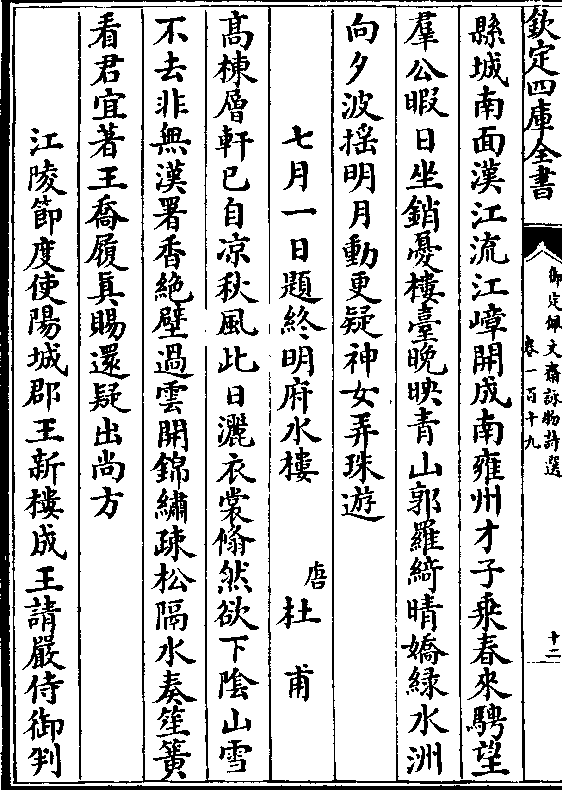 欽定四庫全書
御定佩文齋詠物詩選
卷一百十九
十二
縣城南面漢江流江嶂開成南雍州才子乘春來騁望
羣公暇日坐銷憂樓臺晚映青山郭羅綺晴嬌緑水洲
向夕波揺明月動更疑神女弄珠遊
七月一日題終明府水樓
唐杜甫
髙棟層軒已自凉秋風此日灑衣裳翛然欲下隂山雪
不去非無漢署香絶壁過雲開錦繡疎松隔水奏笙簧
看君宜著王喬履真賜還疑出尚方
江陵節度使陽城郡王新樓成王請嚴侍御判